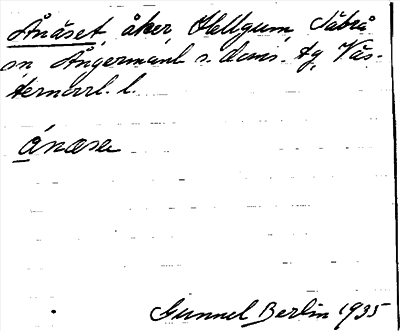 Ånäset, åker, Hellgum, Säbrå
sn Ångermanl. s. doms. tg, Väs-
ternorrl. l.
ånæse
Gunnel Berlin 1935